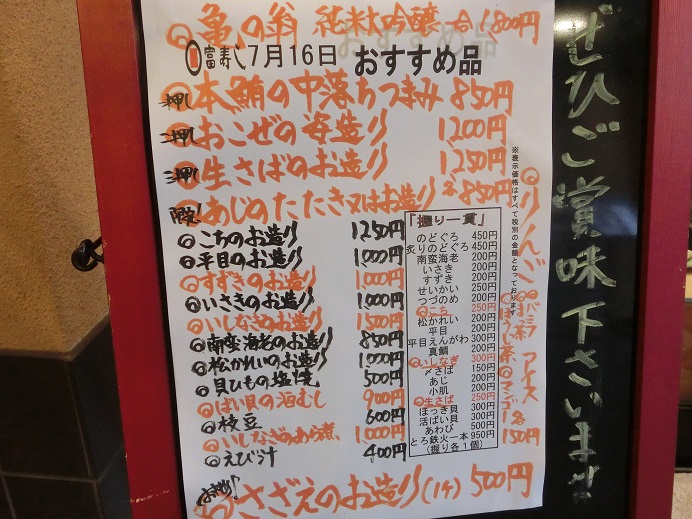 亀の翁 純米大吟醸 一合 1,800円
富寿し 7月16日 おすすめ品
一押し 本鮪の中落ちつまみ 850円
二押し おこぜの姿造り 1200円
三押し 生さばのお造り 1,250円
限定! あじのたたき又はお造り 各850円
こちのお造り 1250円
平目のお造り 1,000円
すずきのお造り 1,000円
いさきのお造り 1,000円
いしなぎのお造り 1500円
南蛮海老のお造り 850円
松かれいのお造り 1,000円
貝ひもの塩焼 500円
ばい貝の酒むし 900円
枝豆 600円
いしなぎのあら煮 1,000円
えびけ 400円
さざえのお造り(1ケ) 500円
「握り一貫」
のどぐろ 450円
炙りのどぐろ 450円
南蛮海老 200円
いさき 200円
すずき 200円
せいかい 250円
つづのめ 200円
こち 250円
松かれい 200円
平目 200円
平目えんがわ 300円
真鯛 200円
いしなぎ 300円
〆さば 150円
あじ 200円
小肌 200円
生さば 250円
ほっき貝 300円
活ばい貝 300円
あわび 500円
とろ鉄火一本 950円
(握り各1個)
※表示価格はすべて税別の金額となっております
りんご
バニラ
ほうじ茶
マンゴー
アイス
各150円
ぜひご賞味下さいませ